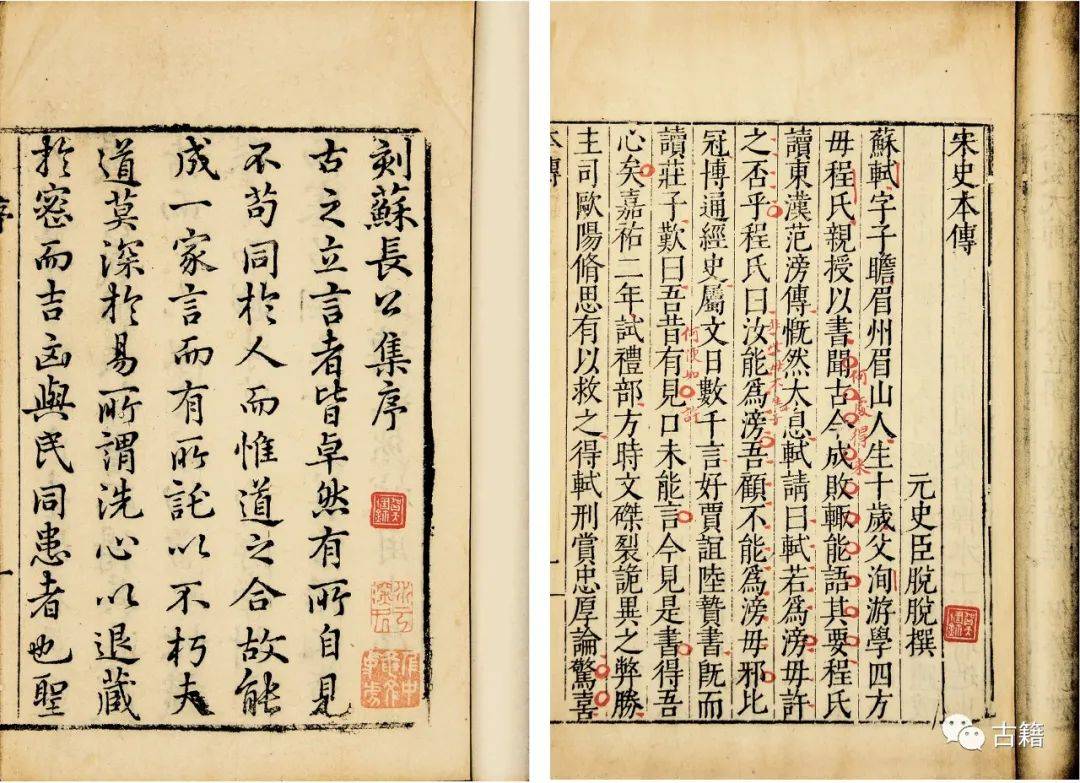 刻蘇長公集序
古之立言者皆卓然有所自見
不苟同於人而惟道之合故能
成一家言而有所託以不朽夫
道莫深於易所謂洗心以退藏
於密而吉凶與民同患者也聖
序
一
宋史本傳
元史臣脫脫撰
蘇軾字子瞻眉州眉山人生十歲父洵游學四方
毋程氏親授以書聞古今成敗輒能語其要程氏
何處得來
讀東漢范滂傳慨然太息軾請曰軾若爲滂毋許
之否乎程氏曰汝能爲滂吾顧不能爲滂毋邪比
冠博通經史屬文日數千言好賈誼陸贄書既而
讀莊子歎曰吾昔有見口未能言今見是書得吾
心矣嘉祐二年試禮部方時文磔裂詭異之弊勝
主司歐陽脩思有以救之得軾刑賞忠厚論驚喜
本傳
一
古籍